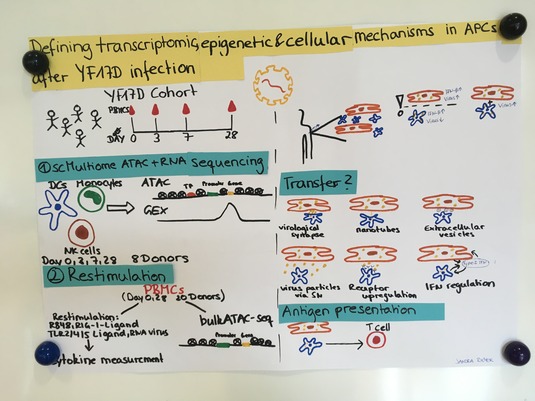 Defining transcriptomic, epigenetic & cellular mechanisms in APCs
after YF17D infection
YF17D Cohort
PBMCs
DAY 0 3 7 28
① scMultiome ATAC+RNA Sequencing
DCs Monocytes
ATAC TF Promoter Gene
GEX
NK cells
Day 0, 3, 7, 28 8 Donors
② Restimulation
PBMCs
(Day 0, 28 20 Donors)
Restimulation:
R848, RIG-I-Ligand
TLR2/4/5 Ligand, RNA virus
bulkATAC-seq
Promoter Gene
cytokine measurement
!
Transfer?
virological
synapse
nanotubes
Extracellular
vesicles
virus particles
via SN
Receptor
upregulation
IFN regulation
Antigen presentation
T cell